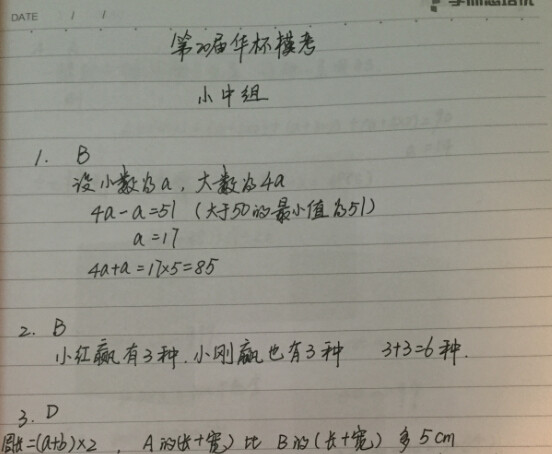 DATE / /
第20届华杯模考
小中组
1. B
设小数为a，大数为4a
4a-a=51 (大于50的最小值为51)
a=17
4a+a=17×5=85
2. B
小红赢有3种.小刚赢也有3种 3+3=6种.
3. D
周长=(a+b)×2 , A的(长+宽)比B的(长+宽)多5cm